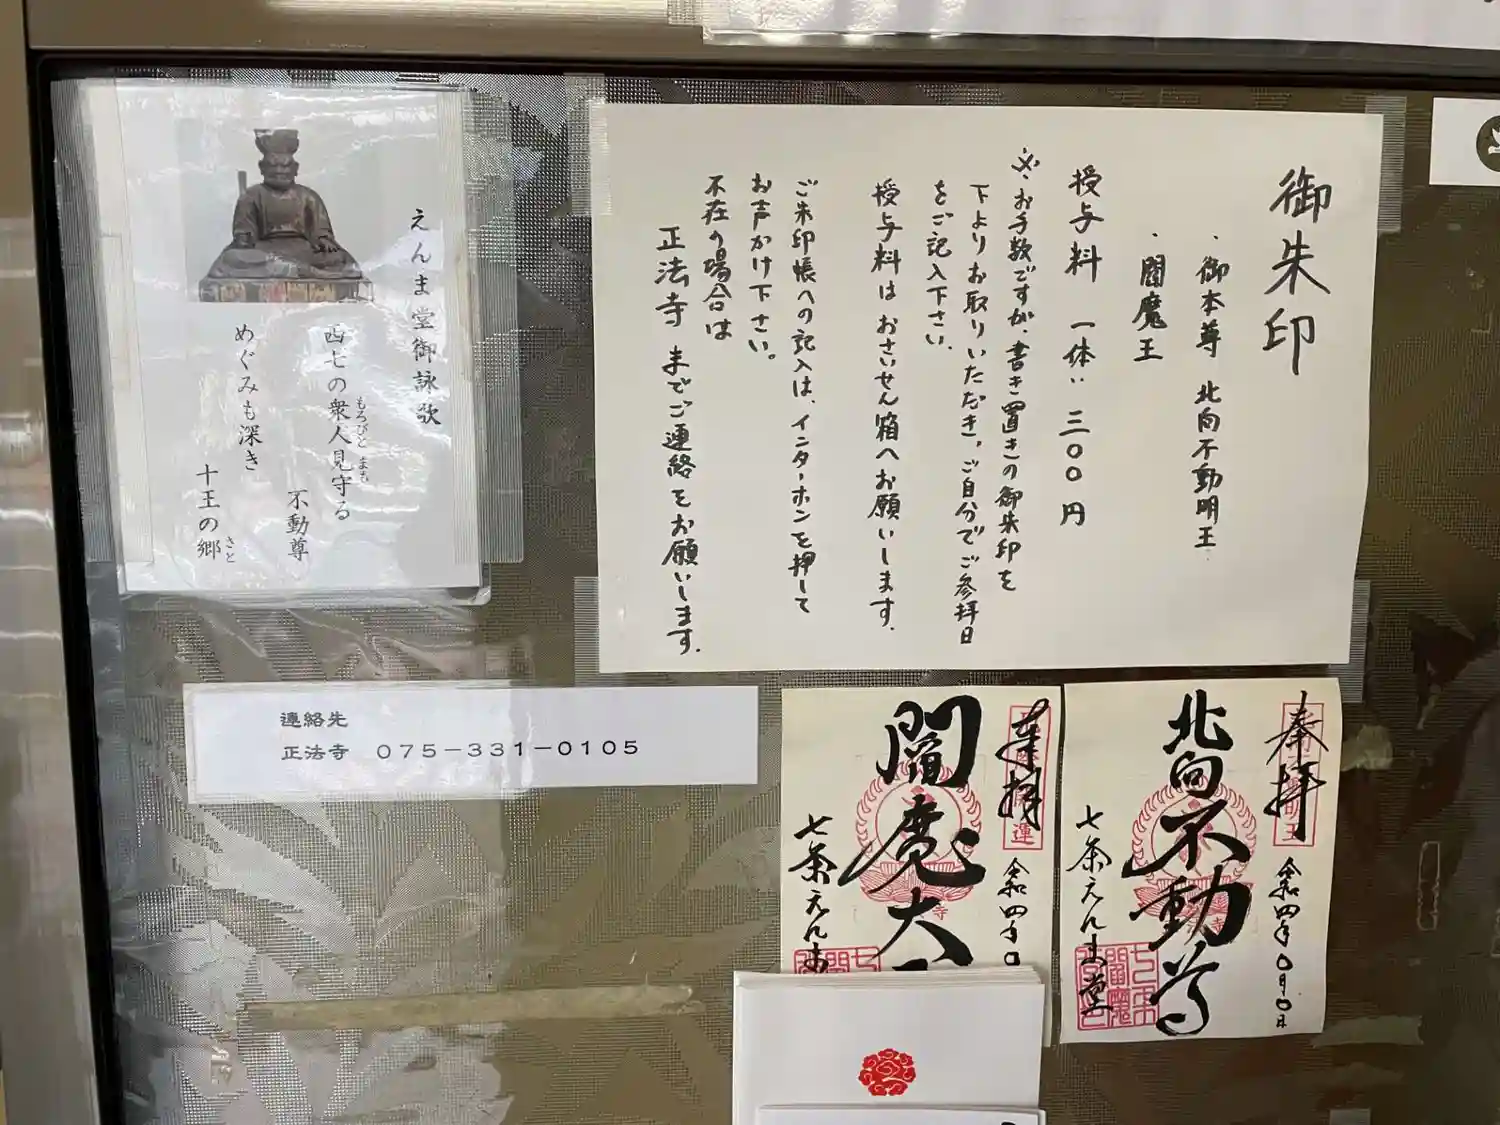 御朱印
・御本尊 北向不動明王
・閻魔王
授与料 一体:三〇〇円
※お手数ですが、書き置きの御朱印を
下よりお取りいただき、ご自分でご参拝日
をご記入下さい。
授与料はおさいせん箱へお願いします。
ご朱印帳への記入は、インターホンを押して
お声かけ下さい。
不在の場合は
正法寺までご連絡をお願いします。
えんま堂御詠歌
西七の衆人見守る
もろびと まも
不動尊
めぐみも深き
十王の郷
さと
連絡先
正法寺 075-331-0105
奉拝
令和四年〇月〇日
北向不動尊
七条えんま堂
奉拝
令和四年〇
閻魔大
七条えんま